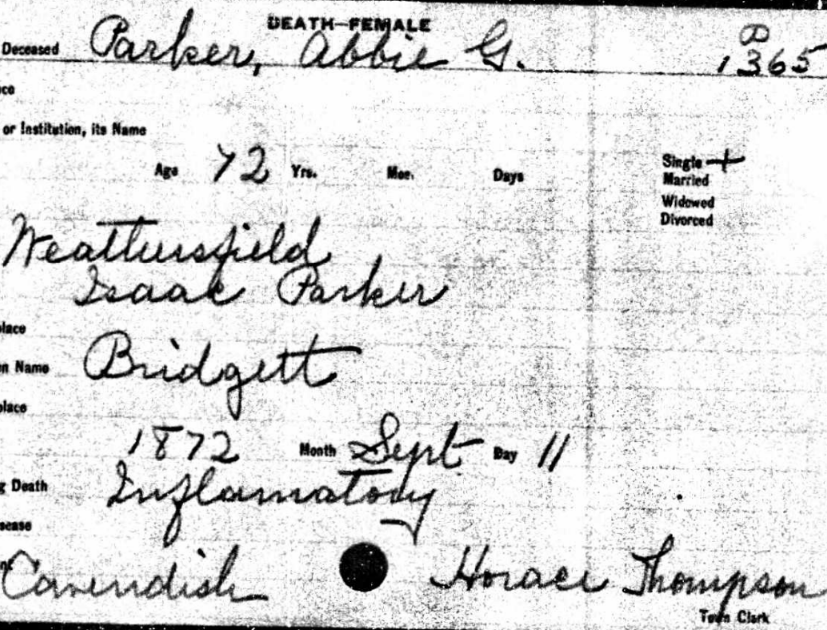 DEATH—FEMALE
Deceased Parker, Abbie G. P 1365
ce
or Institution, its Name
Age 72 Yrs. Mos. Days Single + Married Widowed Divorced
Weathersfield
Isaac Parker
place
n Name Bridgett
place
1872 Month Sept Day 11
g Death Inflamatory
sease
nt Cavendish Horace Thompson
Town Clerk